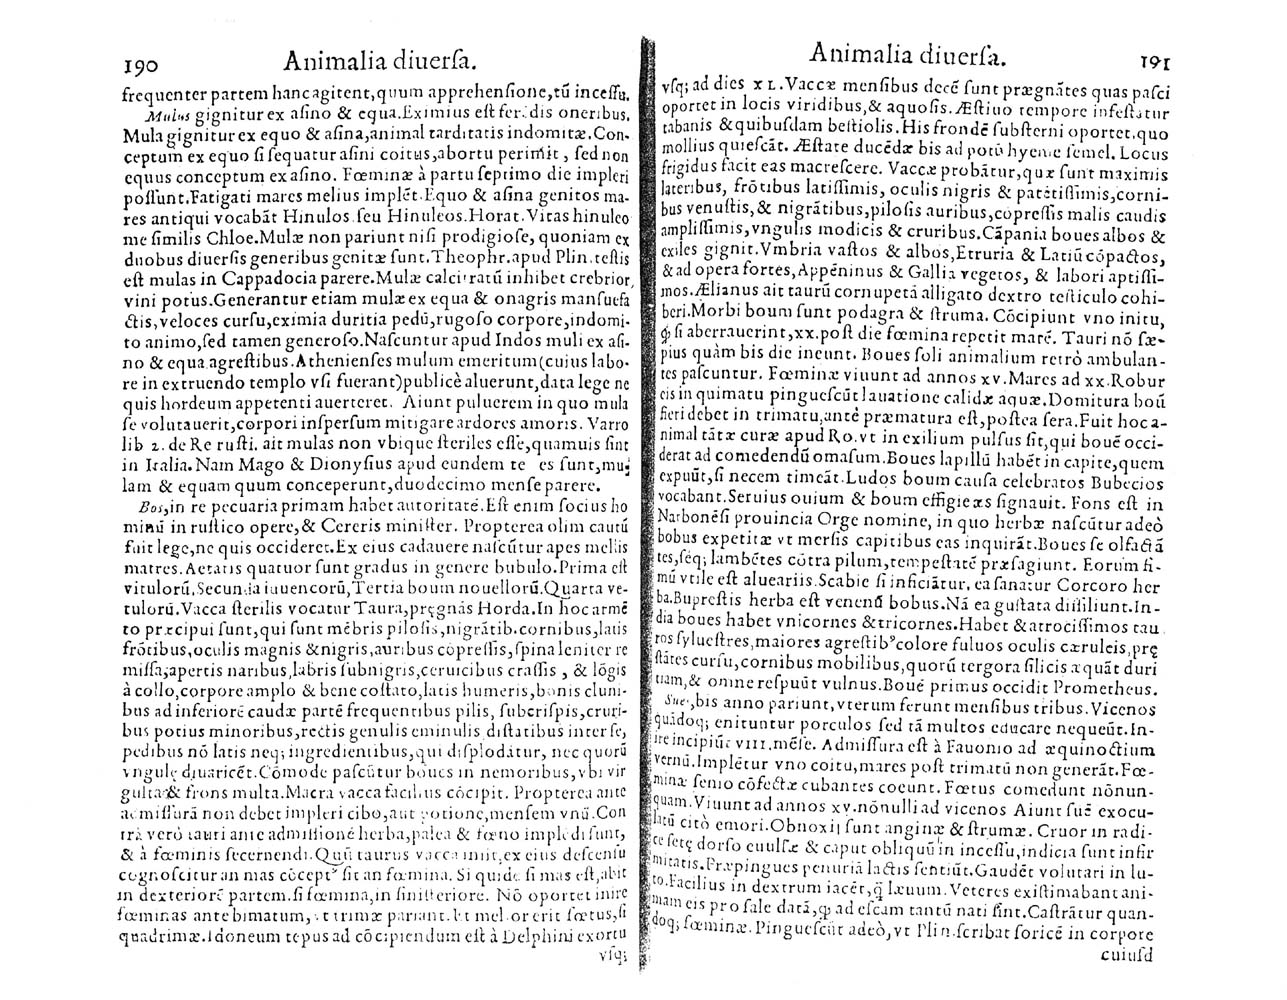 190 Animalia diuerſa.
frequenter partem hanc agitent, quum apprehenſione, tū inceſſu.
Mulus gignitur ex aſino & equa. Eximius eſt ferēdis oneribus.
Mula gignitur ex equo & aſina, animal tarditatis indomitæ. Con-
ceptum ex equo ſi ſequatur aſini coitus, abortu perimit, ſed non
equus conceptum ex aſino. Fœminæ à partu ſeptimo die impleri
poſſunt. Fatigati mares melius implēt. Equo & aſina genitos ma-
res antiqui vocabāt Hinulos ſeu Hinuleos. Horat. Vitas hinuleo
me ſimilis Chloe. Mulæ non pariunt niſi prodigioſe, quoniam ex
duobus diuerſis generibus genitæ ſunt. Theophr. apud Plin. teſtis
eſt mulas in Cappadocia parere. Mulæ calcitratū inhibet crebrior
vini potus. Generantur etiam mulæ ex equa & onagris manſuefa
ctis, veloces curſu, eximia duritia pedū, rugoſo corpore, indomi-
to animo, ſed tamen generoſo. Naſcuntur apud Indos muli ex aſi-
no & equa agreſtibus. Athenienſes mulum emeritum (cuius labo-
re in extruendo templo vſi fuerant) publicè aluerunt, data lege ne
quis hordeum appetenti auerteret. Aiunt puluerem in quo mula
ſe volutauerit, corpori inſperſum mitigare ardores amoris. Varro
lib 2. de Re ruſti. ait mulas non vbique ſteriles eſſe, quamuis ſint
in Italia. Nam Mago & Dionyſius apud eundem te es ſunt, mu-
lam & equam quum conceperunt, duodecimo menſe parere.
Bos, in re pecuaria primam habet autoritatē. Eſt enim ſocius ho
minū in ruſtico opere, & Cereris miniſter. Propterea olim cautū
fuit lege, ne quis occideret. Ex eius cadauere naſcūtur apes mellis
matres. Aetatis quatuor ſunt gradus in genere bubulo. Prima eſt
vitulorū, Secunda iuuencorū, Tertia boum nouellorū. Quarta ve-
tulorū. Vacca ſterilis vocatur Taura, pręgnās Horda. In hoc armē
to præcipui ſunt, qui ſunt mēbris piloſis, nigrātib. cornibus, latis
frōtibus, oculis magnis & nigris, auribus cōpreſſis, ſpina leniter re
miſſa, apertis naribus, labris ſubnigris, ceruicibus craſſis, & lōgis
à collo, corpore amplo & bene coſtato, latis humeris, bonis cluni-
bus ad inferiorē caudæ partē frequentibus pilis, ſubcriſpis, cruri-
bus potius minoribus, rectis genulis eminulis diſtātibus inter ſe,
pedibus nō latis neq; ingredientibus, qui diſplodātur, nec quorū
vngulę diuaricēt. Cōmode paſcūtur boues in nemoribus, vbi vir
gulta & frons multa. Macra vacca facilius cōcipit. Propterea ante
admiſſurā non debet impleri cibo, aut potione, menſem vnū. Con
trà verò tauri ante admiſſionē herba, palea & fœno implēdi ſunt,
& à fœminis ſecernendi. Quū taurus vaccā iniit, ex eius deſcenſu
cognoſcitur an mas cōceptꝰ ſit an fœmina. Si quidē ſi mas eſt, abit
in dexteriorē partem. ſi fœmina, in ſiniſteriore. Nō oportet inire
fœminas ante bimatum, vt trimæ pariant. Et melior erit fœtus, ſi
quadrimæ. Idoneum tēpus ad cōcipiendum eſt à Delphini exortu
vſq;
Animalia diuerſa. 191
vſq; ad dies XL. Vaccæ menſibus decē ſunt prægnātes quas paſci
oportet in locis viridibus, & aquoſis. Æſtiuo tempore infeſtātur
tabanis & quibuſdam beſtiolis. His frondē ſubſterni oportet, quo
mollius quieſcāt. Æſtate ducēdæ bis ad potū hyeme ſemel. Locus
frigidus facit eas macreſcere. Vaccæ probātur, quæ ſunt maximis
lateribus, frōtibus latiſſimis, oculis nigris & patētiſſimis, corni-
bus venuſtis, & nigrātibus, piloſis auribus, cōpreſſis malis caudis
ampliſſimis, vngulis modicis & cruribus. Cāpania boues albos &
exiles gignit. Vmbria vaſtos & albos, Etruria & Latiū cōpactos,
& ad opera fortes, Appēninus & Gallia vegetos, & labori aptiſſi-
mos. Ælianus ait taurū cornupetā alligato dextro teſticulo cohi-
beri. Morbi boum ſunt podagra & ſtruma. Cōcipiunt vno initu,
ꝙ ſi aberrauerint, xx. poſt die fœmina repetit marē. Tauri nō ſæ-
pius quàm bis die ineunt. Boues ſoli animalium retrò ambulan-
tes paſcuntur. Fœminæ viuunt ad annos xv. Mares ad xx. Robur
eis in quimatu pingueſcūt lauatione calidæ aquæ. Domitura boū
fieri debet in trimatu, antè præmatura eſt, poſtea ſera. Fuit hoc a-
nimal tātæ curæ apud Ro. vt in exilium pulſus ſit, qui bouē occi-
derat ad comedendū omaſum. Boues lapillū habēt in capite, quem
expuūt, ſi necem timeāt. Ludos boum cauſa celebratos Bubecios
vocabant. Seruius ouium & boum effigie æs ſignauit. Fons eſt in
Narbonēſi prouincia Orge nomine, in quo herbæ naſcūtur adeò
bobus expetitæ vt merſis capitibus eas inquirāt. Boues ſe olfactā
tes, ſeq; lambētes cōtra pilum, tempeſtatē præſagiunt. Eorum fi-
mū vtile eſt alueariis. Scabie ſi inficiātur, ea ſanatur Corcoro her
ba. Bupreſtis herba eſt venenū bobus. Nā ea guſtata diſſiliunt. In-
dia boues habet vnicornes & tricornes. Habet & atrociſſimos tau
ros ſylueſtres, maiores agreſtibꝰ colore fuluos oculis cæruleis, prę
ſtātes curſu, cornibus mobilibus, quorū tergora ſilicis æquāt duri
tiam, & omne reſpuūt vulnus. Bouē primus occidit Prometheus.
Sues, bis anno pariunt, vterum ferunt menſibus tribus. Vicenos
quādoq; enituntur porculos ſed tā multos educare nequeūt. In-
ire incipiūt VIII. mēſe. Admiſſura eſt à Fauonio ad æquinoctium
vernū. Implētur vno coitu, mares poſt trimatū non generāt. Fœ-
minæ ſenio cōfectæ cubantes coeunt. Fœtus comedunt nōnun-
quam. Viuunt ad annos xv. nōnulli ad vicenos Aiunt ſuē exocu-
latū citò emori. Obnoxij ſunt anginæ & ſtrumæ. Cruor in radi-
ce ſetę dorſo euulſæ & caput obliquū in inceſſu, indicia ſunt infir
mitatis. Præpingues penuriā lactis ſentiūt. Gaudēt volutari in lu-
to. Facilius in dextrum iacēt, q̄ læuum. Veteres exiſtimabant ani-
mam eis pro ſale datā, ꝙ ad eſcam tantū nati ſint. Caſtrātur quan-
doq; fœminæ. Pingueſcūt adeò, vt Plin. ſcribat ſoricē in corpore
cuiuſd